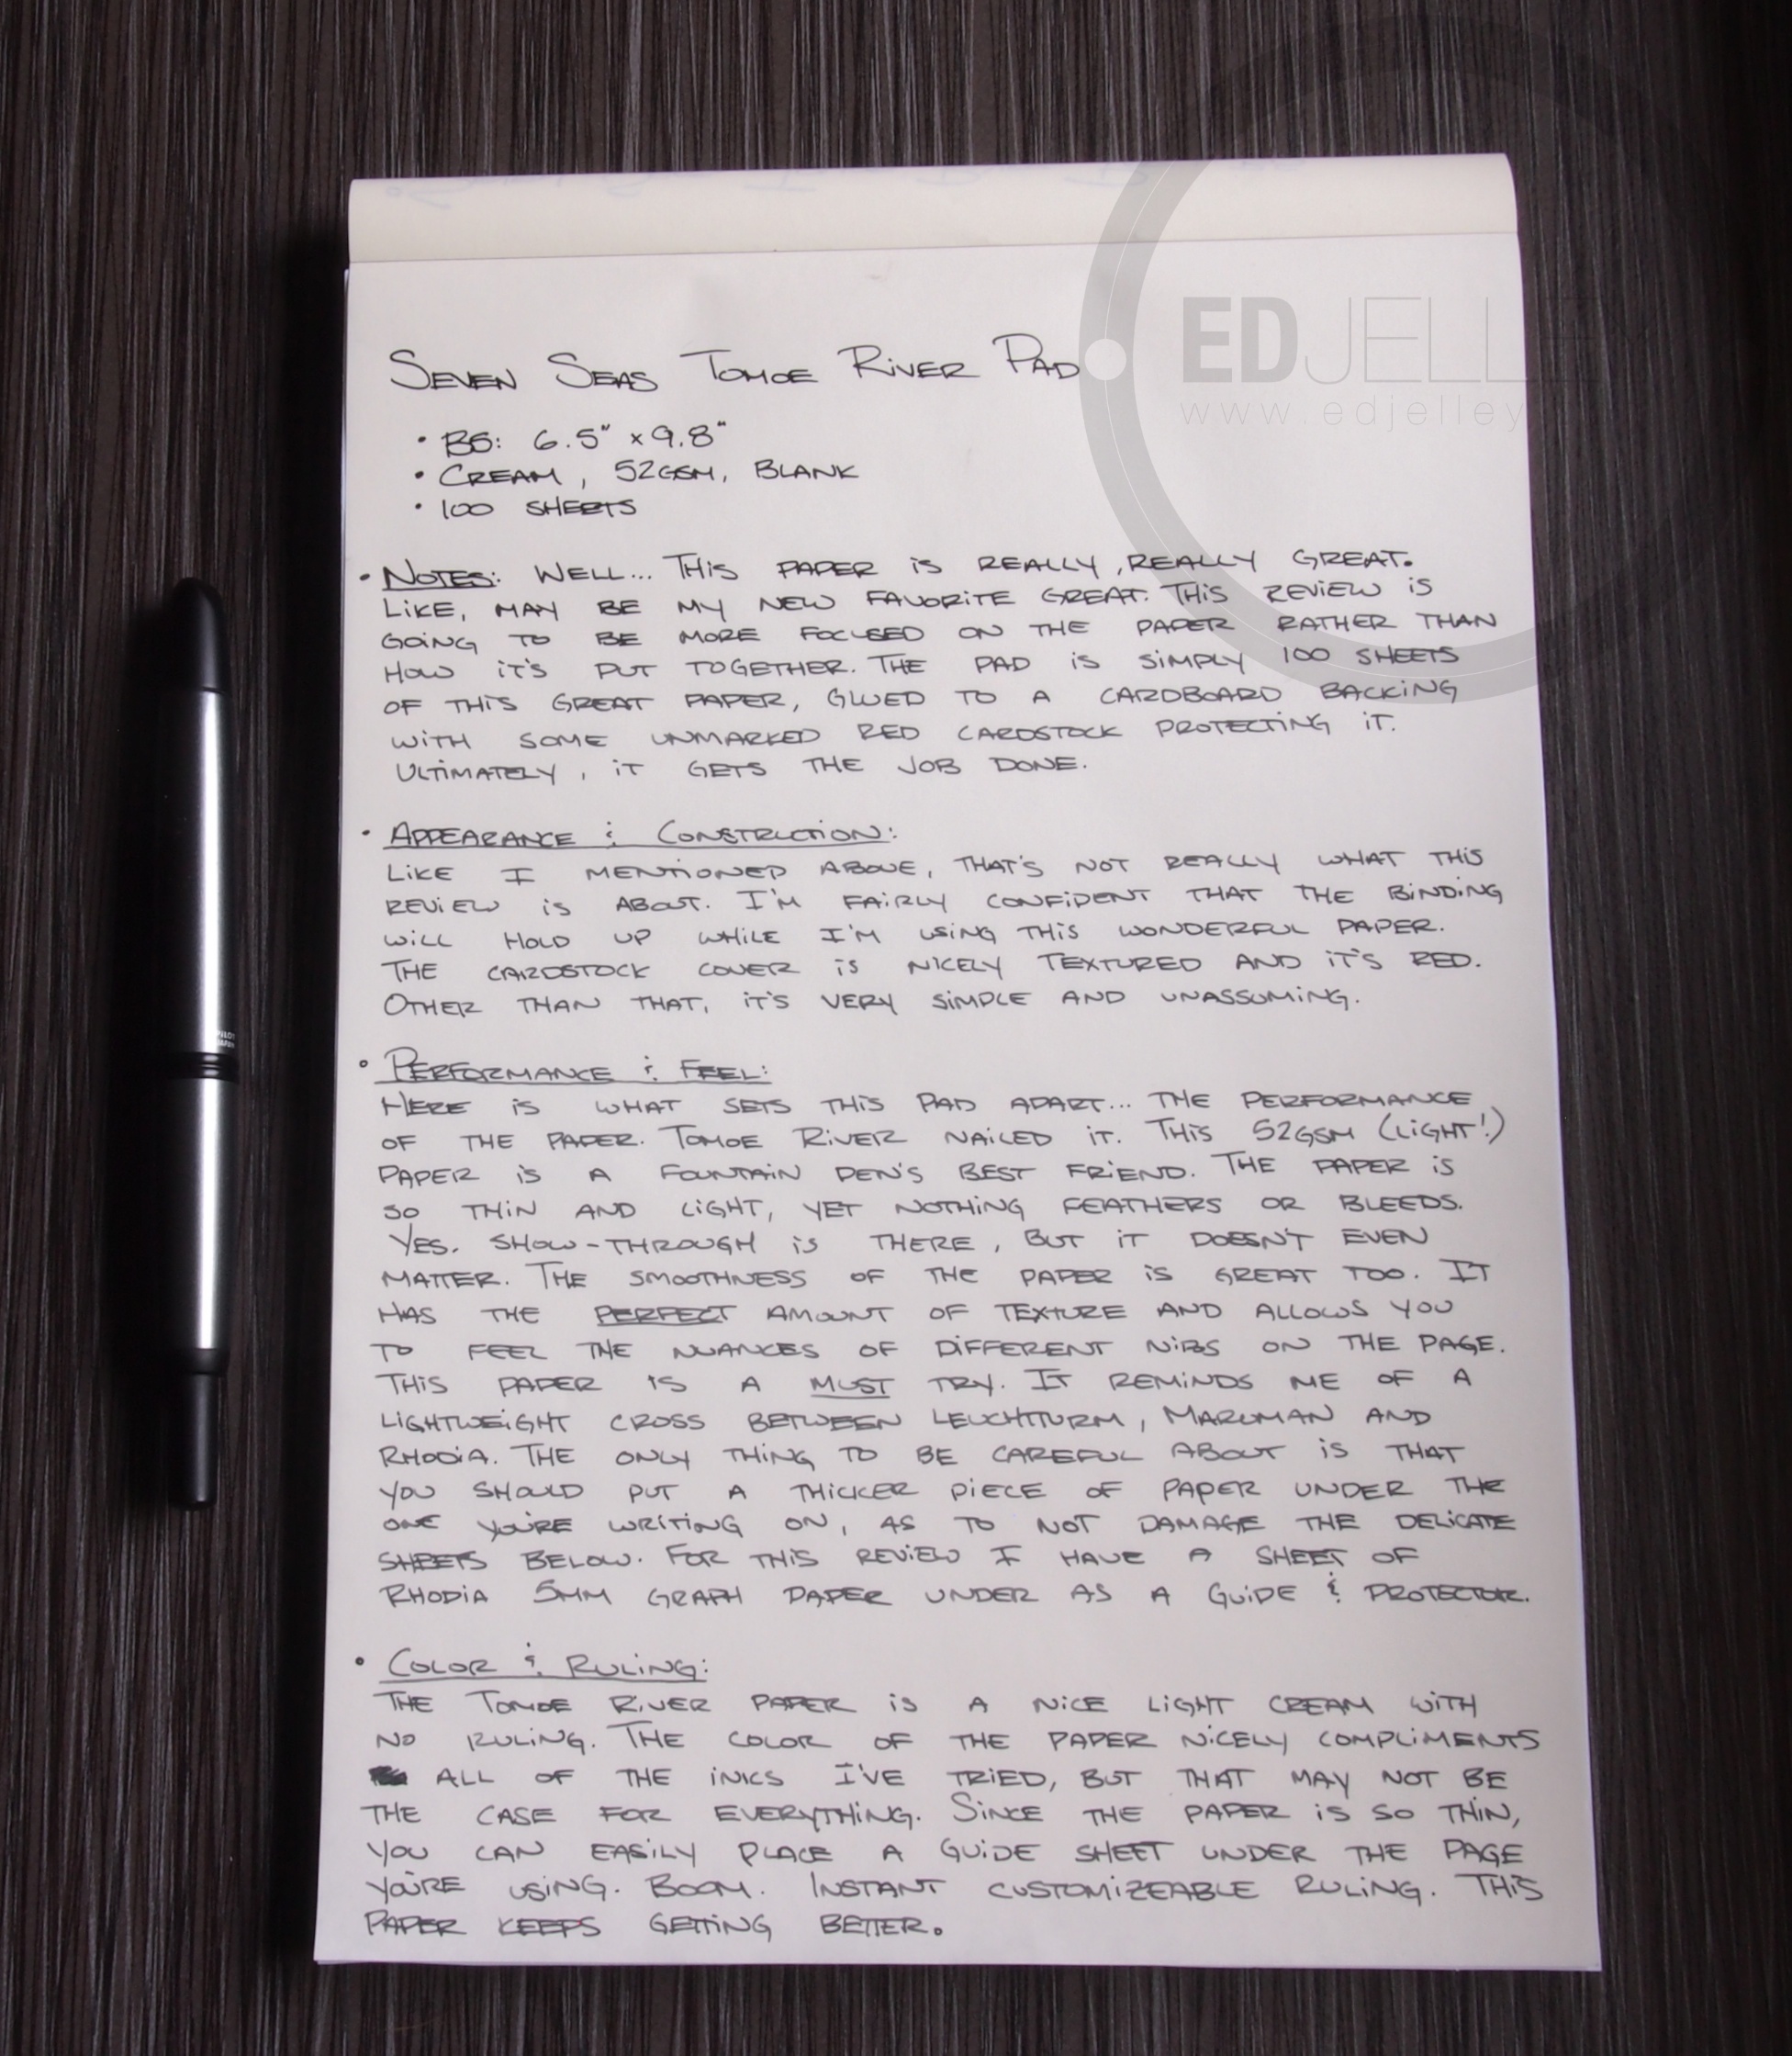 EDJELLE
www.edjelley
SEVEN SEAS TOMOE RIVER PAD
• B5: 6.5" x 9.8"
• CREAM, 52GSM, BLANK
• 100 SHEETS
• NOTES: WELL... THIS PAPER IS REALLY, REALLY GREAT.
LIKE, MAY BE MY NEW FAVORITE GREAT. THIS REVIEW IS
GOING TO BE MORE FOCUSED ON THE PAPER RATHER THAN
HOW IT'S PUT TOGETHER. THE PAD IS SIMPLY 100 SHEETS
OF THIS GREAT PAPER, GLUED TO A CARDBOARD BACKING
WITH SOME UNMARKED RED CARDSTOCK PROTECTING IT.
ULTIMATELY, IT GETS THE JOB DONE.
• APPEARANCE & CONSTRUCTION:
LIKE I MENTIONED ABOVE, THAT'S NOT REALLY WHAT THIS
REVIEW IS ABOUT. I'M FAIRLY CONFIDENT THAT THE BINDING
WILL HOLD UP WHILE I'M USING THIS WONDERFUL PAPER.
THE CARDSTOCK COVER IS NICELY TEXTURED AND IT'S RED.
OTHER THAN THAT, IT'S VERY SIMPLE AND UNASSUMING.
• PERFORMANCE & FEEL:
HERE IS WHAT SETS THIS PAD APART... THE PERFORMANCE
OF THE PAPER. TOMOE RIVER NAILED IT. THIS 52GSM (LIGHT!)
PAPER IS A FOUNTAIN PEN'S BEST FRIEND. THE PAPER IS
SO THIN AND LIGHT, YET NOTHING FEATHERS OR BLEEDS.
YES. SHOW-THROUGH IS THERE, BUT IT DOESN'T EVEN
MATTER. THE SMOOTHNESS OF THE PAPER IS GREAT TOO. IT
HAS THE PERFECT AMOUNT OF TEXTURE AND ALLOWS YOU
TO FEEL THE NUANCES OF DIFFERENT NIBS ON THE PAGE.
THIS PAPER IS A MUST TRY. IT REMINDS ME OF A
LIGHTWEIGHT CROSS BETWEEN LEUCHTTURM, MARUMAN AND
RHODIA. THE ONLY THING TO BE CAREFUL ABOUT IS THAT
YOU SHOULD PUT A THICKER PIECE OF PAPER UNDER THE
ONE YOU'RE WRITING ON, AS TO NOT DAMAGE THE DELICATE
SHEETS BELOW. FOR THIS REVIEW I HAVE A SHEET OF
RHODIA 5MM GRAPH PAPER UNDER AS A GUIDE & PROTECTOR.
• COLOR & RULING:
THE TOMOE RIVER PAPER IS A NICE LIGHT CREAM WITH
NO RULING. THE COLOR OF THE PAPER NICELY COMPLIMENTS
ALL OF THE INKS I'VE TRIED, BUT THAT MAY NOT BE
THE CASE FOR EVERYTHING. SINCE THE PAPER IS SO THIN,
YOU CAN EASILY PLACE A GUIDE SHEET UNDER THE PAGE
YOU'RE USING. BOOM. INSTANT CUSTOMIZEABLE RULING. THIS
PAPER KEEPS GETTING BETTER.
PILOT
JAPAN